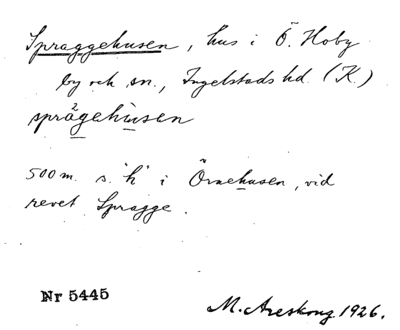 Spraggehusen, hus i Ö. Hoby
by och sn., Ingelstads hd. (K.)
sprägehùsen
500 m. s. 'h' i Örnehusen, vid
revet Spragge.
Nr 5445
M. Areskoug 1926.